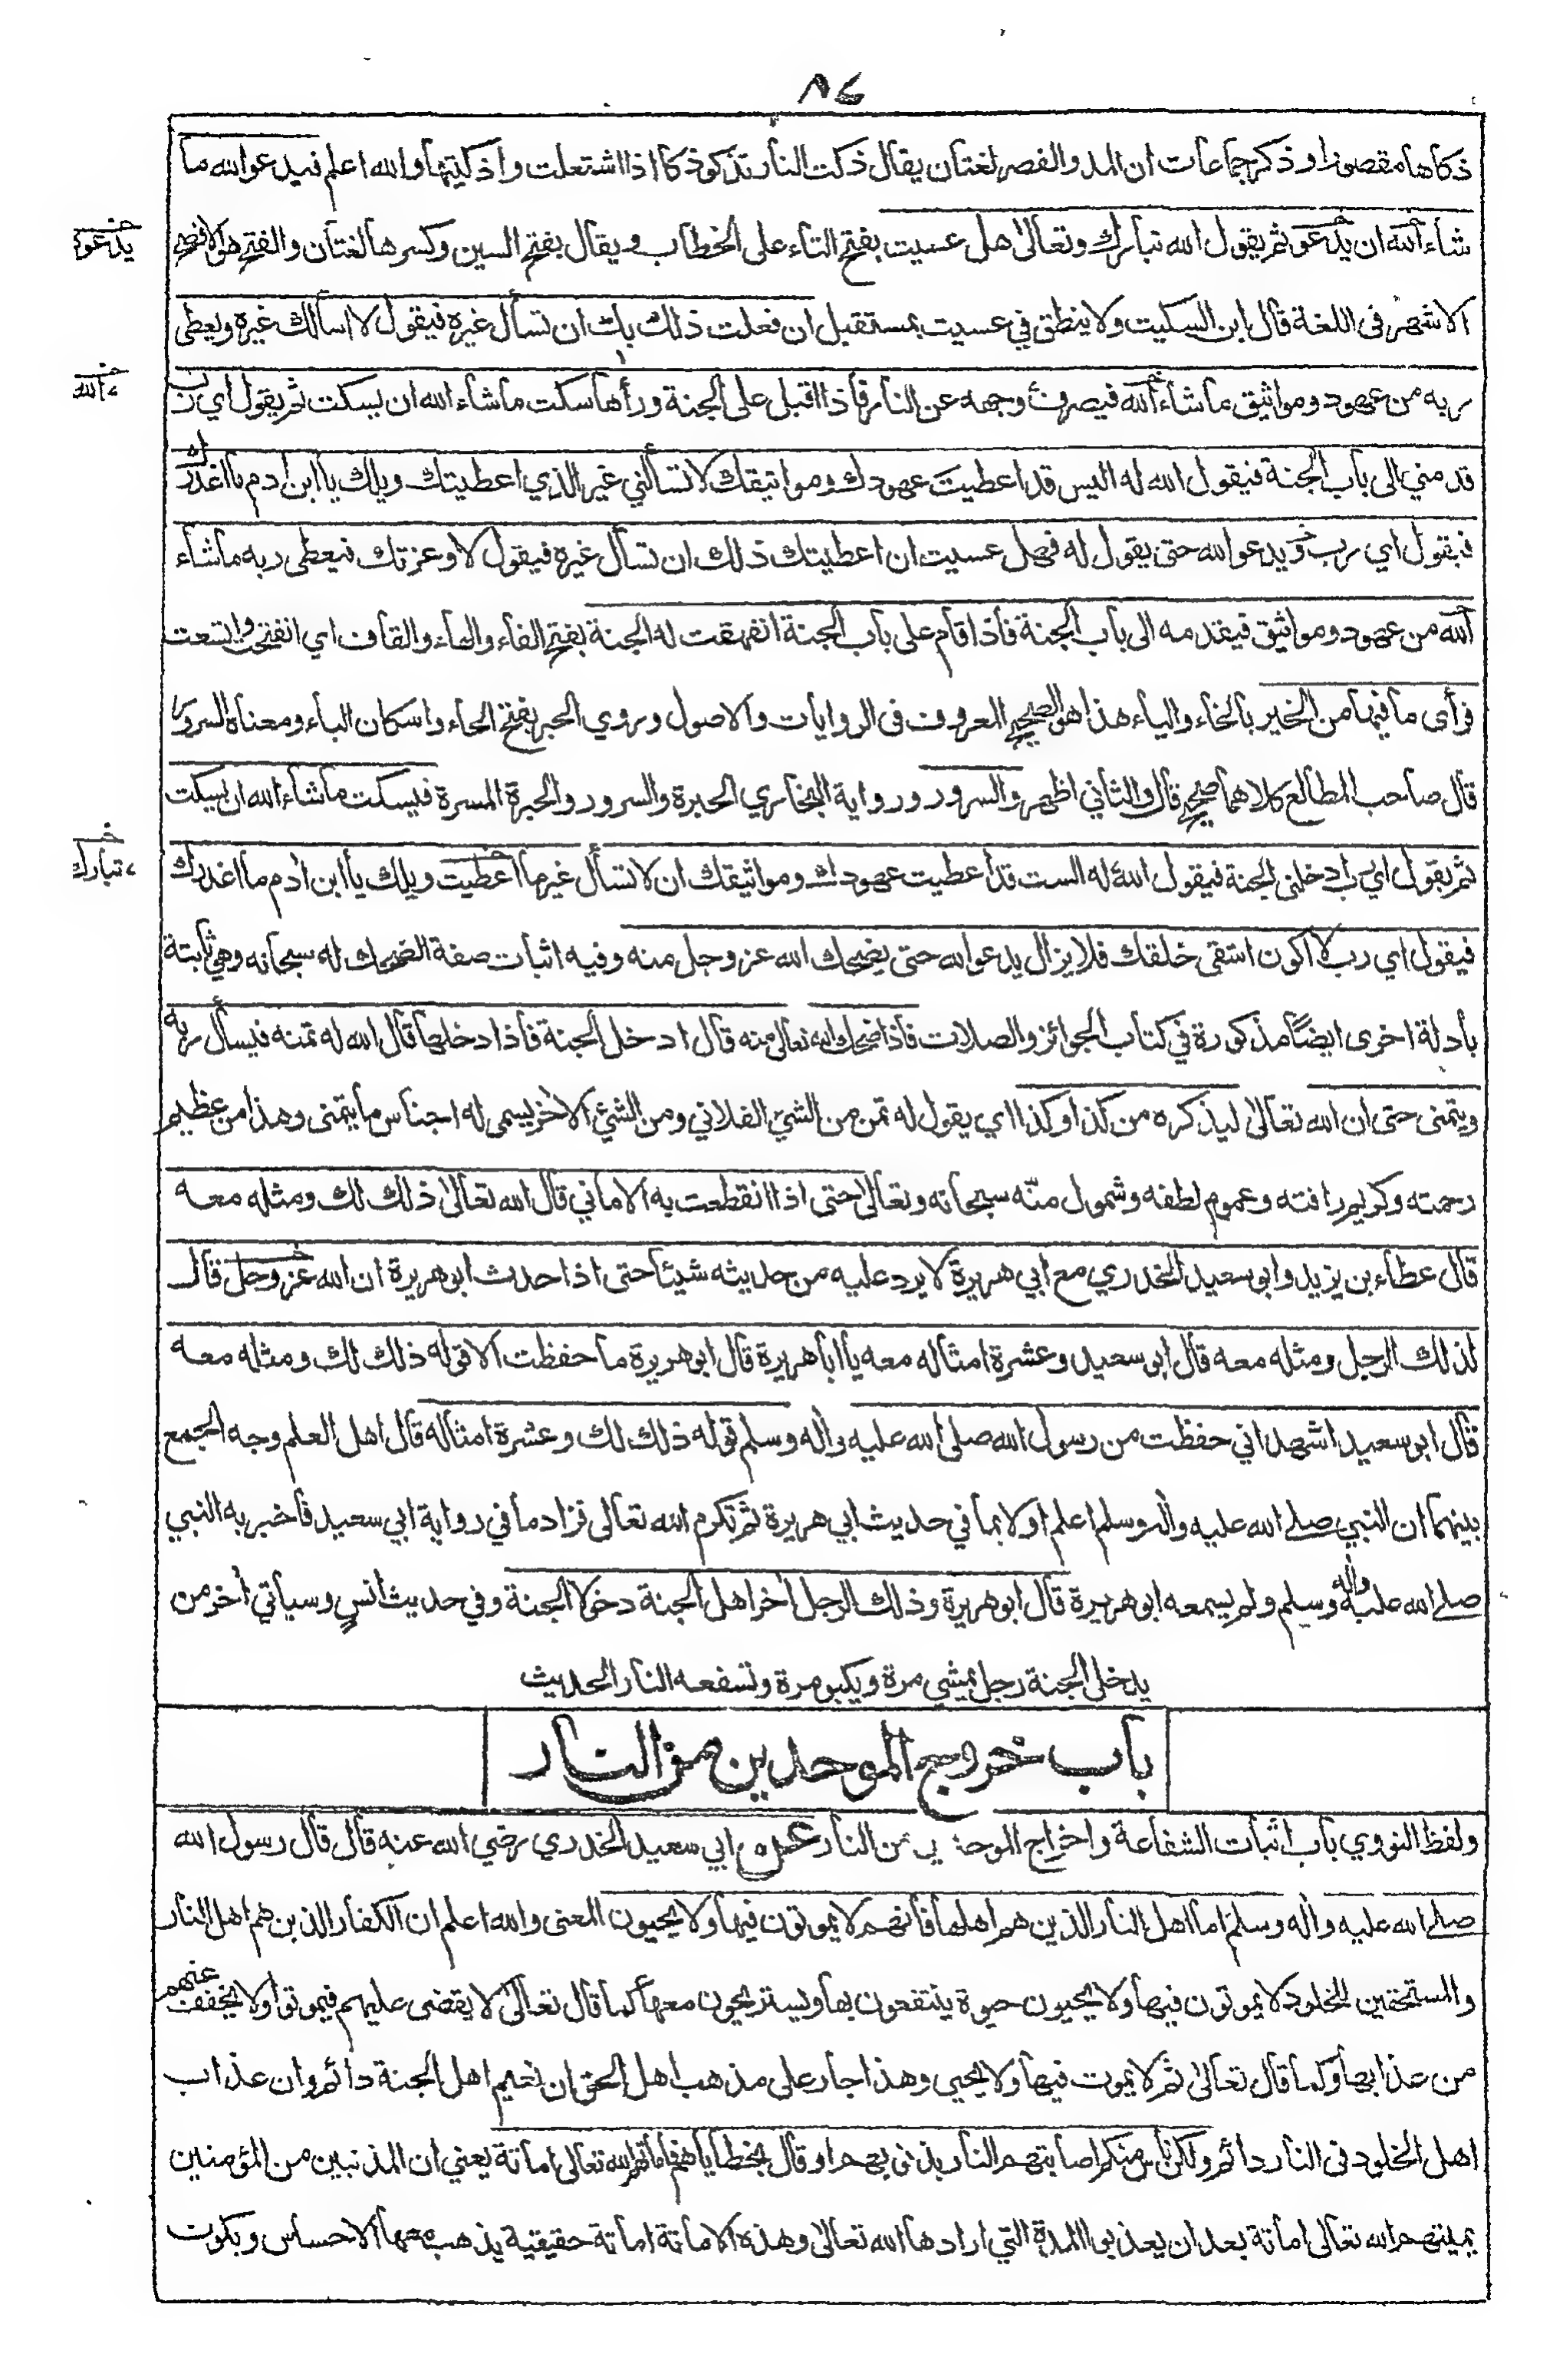 ٨٤
ذكاها مقصورا وذكر جماعات ان المد والقصر لغتان يقال ذكت النار تذكو ذكا اذا اشتعلت واذكيتها والله اعلم فيدعو الله ما
شاء الله ان يدعو ثم يقول الله تبارك وتعالى هل عسيت بفتح التاء على الخطاب ويقال بفتح السين وكسرها لغتان والفتح هو الافصح
يدعوه
الاشهر فى اللغة قال ابن السكيت ولا ينطق في عسيت بمستقبل ان فعلت ذلك بك ان تسأل غيره فيقول لا اسألك غيره ويعطى
ربه من عهود ومواثيق ما شاء الله فيصرف وجهه عن النار فاذا اقبل على الجنة ورأها سكت ما شاء الله ان يسكت ثم يقول اي رب
الله
قدمني الى باب الجنة فيقول الله له اليس قد اعطيت عهودك ومواثيقك لا تسألني غير الذي اعطيتك ويلك يا ابن ادم ما اغدرك
فيقول اي رب ويدعو الله حتى يقول له فهل عسيت ان اعطيتك ذلك ان تسأل غيره فيقول لا وعزتك فيعطى ربه ما شاء
الله من عهود ومواثيق فيقدمه الى باب الجنة فاذا قام على باب الجنة انفهقت له الجنة بفتح الفاء والهاء والقاف اي انفتحت واتسعت
فرأى ما فيها من الخير بالخاء والياء هذا هو الصحيح المعروف فى الروايات والاصول وروي الحبر بفتح الحاء واسكان الباء ومعناه السرور
قال صاحب المطالع كلاهما صحيح قال والثاني اظهر والسرور ورواية البخاري الحبرة والسرور والحبرة المسرة فيسكت ما شاء الله ان يسكت
ثم يقول اي رب ادخلنى الجنة فيقول الله له الست قد اعطيت عهودك ومواثيقك ان لا تسأل غير ما اعطيت ويلك يا ابن ادم ما اغدرك
تبارك
فيقول اي رب لا اكون اشقى خلقك فلا يزال يدعو الله حتى يضحك الله عز وجل منه وفيه اثبات صفة الضحك له سبحانه وهي ثابتة
بادلة اخرى ايضًا مذكورة في كتاب الجوائز والصلات فاذا ضحك الله تعالى منه قال ادخل الجنة فاذا دخلها قال الله له تمنه فيسأل ربه
ويتمنى حتى ان الله تعالى ليذكره من كذا وكذا اي يقول له تمن من الشيء الفلاني ومن الشيء الاخر يسمى له اجناس ما يتمنى وهذا من عظيم
رحمته وكريم رافته وعموم لطفه وشمول منّه سبحانه وتعالى حتى اذا انقطعت به الاماني قال الله تعالى ذلك لك ومثله معه
قال عطاء بن يزيد وابو سعيد الخدري مع ابي هريرة لا يرد عليه من حديثه شيئا حتى اذا حدث ابو هريرة ان الله عز وجل قال
لذلك الرجل ومثله معه قال ابو سعيد وعشرة امثاله معه يا ابا هريرة قال ابو هريرة ما حفظت الا قوله ذلك لك ومثله معه
قال ابو سعيد اشهد اني حفظت من رسول الله صلى الله عليه واله وسلم قوله ذلك لك وعشرة امثاله قال اهل العلم وجه الجمع
بينهما ان النبي صلى الله عليه واله وسلم اعلم اولا بما في حديث ابي هريرة ثم تكرم الله تعالى فزاد ما في رواية ابي سعيد فاخبر به النبي
صلى الله عليه واله وسلم ولم يسمعه ابو هريرة قال ابو هريرة وذلك الرجل اخر اهل الجنة دخولا الجنة وفي حديث انس وسياتي اخر من
يدخل الجنة رجل يمشي مرة ويكبو مرة وتسفعه النار الحديث
باب خروج الموحدين من النار
ولفظ النووي باب اثبات الشفاعة واخراج الموحدين من النار عن ابي سعيد الخدري رضي الله عنه قال قال رسول الله
صلى الله عليه واله وسلم اما اهل النار الذين هم اهلها فانهم لا يموتون فيها ولا يحيون المعنى والله اعلم ان الكفار الذين هم اهل النار
والمستحقين للخلود لا يموتون فيها ولا يحيون حيوة ينتفعون بها ويستريحون معها كما قال تعالى لا يقضى عليهم فيموتوا ولا يخفف عنهم
من عذابها وكما قال تعالى ثم لا يموت فيها ولا يحيى وهذا جار على مذهب اهل الحق ان نعيم اهل الجنة دائم وان عذاب
اهل الخلود فى النار دائم ولكن ناس منكم اصابتهم النار بذنوبهم او قال بخطاياهم فاماتهم الله تعالى اماتة يعني ان المذنبين من المؤمنين
يميتهم الله تعالى اماتة بعد ان يعذبوا المدة التي ارادها الله تعالى وهذه الاماتة اماتة حقيقية يذهب معها الاحساس ويكون